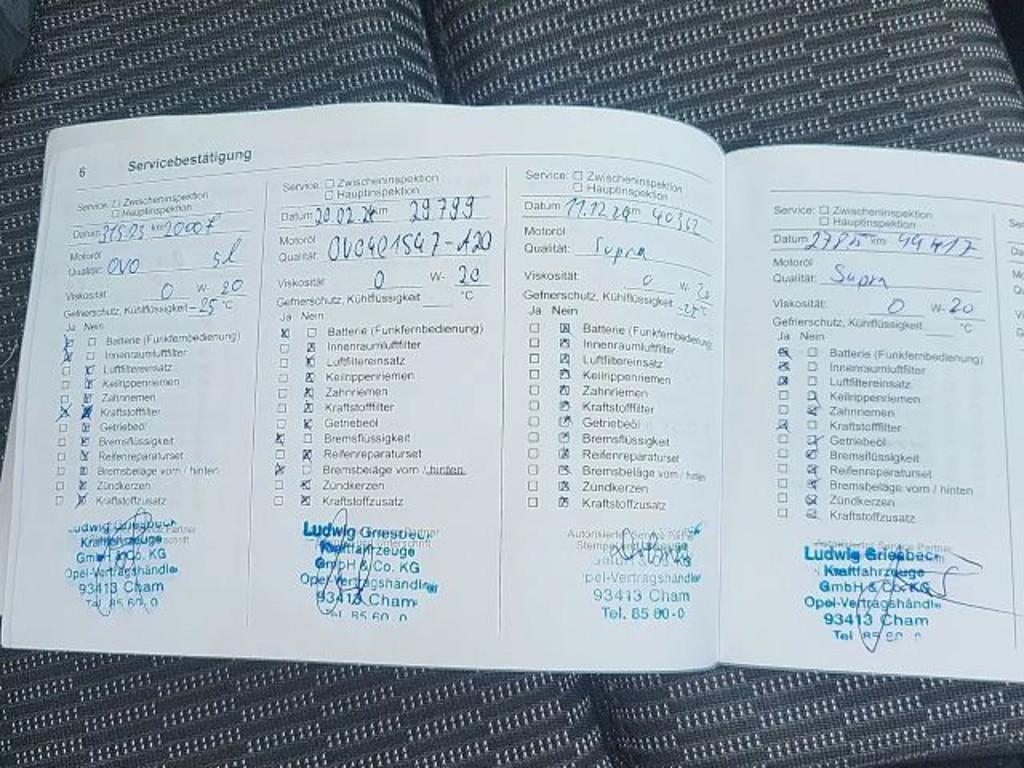 6 Servicebestätigung
Service: ☐ Zwischeninspektion
☐ Hauptinspektion
Datum km
Motoröl
Qualität: OVO 5l
Viskosität: 0 W- 20
Gefrierschutz, Kühlflüssigkeit -25 °C
Ja Nein
Batterie (Funkfernbedienung)
Innenraumluftfilter
Luftfiltereinsatz
Keilrippenriemen
Zahnriemen
Kraftstofffilter
Getriebeöl
Bremsflüssigkeit
Reifenreparaturset
Bremsbeläge vorn / hinten
Zündkerzen
Kraftstoffzusatz
Ludwig Griesbeck
Kraftfahrzeuge
GmbH & Co. KG
Opel-Vertragshändler
93413 Cham
Tel. 85 60-0
Service: ☐ Zwischeninspektion
☐ Hauptinspektion
Datum 20.02.24 km 29799
Motoröl
Qualität: OVO401547-A20
Viskosität: 0 W- 20
Gefrierschutz, Kühlflüssigkeit °C
Ja Nein
Batterie (Funkfernbedienung)
Innenraumluftfilter
Luftfiltereinsatz
Keilrippenriemen
Zahnriemen
Kraftstofffilter
Getriebeöl
Bremsflüssigkeit
Reifenreparaturset
Bremsbeläge vorn / hinten
Zündkerzen
Kraftstoffzusatz
Ludwig Griesbeck
Kraftfahrzeuge
GmbH & Co. KG
Opel-Vertragshändler
93413 Cham
Tel. 85 60-0
Service: ☐ Zwischeninspektion
☐ Hauptinspektion
Datum 11.12.24 km
Motoröl
Qualität: Supra
Viskosität: 0 W- 20
Gefrierschutz, Kühlflüssigkeit °C
Ja Nein
Batterie (Funkfernbedienung)
Innenraumluftfilter
Luftfiltereinsatz
Keilrippenriemen
Zahnriemen
Kraftstofffilter
Getriebeöl
Bremsflüssigkeit
Reifenreparaturset
Bremsbeläge vorn / hinten
Zündkerzen
Kraftstoffzusatz
Autorisierter Service Partner
GmbH & Co. KG
Opel-Vertragshändler
93413 Cham
Tel. 85 60-0
Service: ☐ Zwischeninspektion
☐ Hauptinspektion
Datum km 44417
Motoröl
Qualität: Supra
Viskosität: 0 W- 20
Gefrierschutz, Kühlflüssigkeit °C
Ja Nein
Batterie (Funkfernbedienung)
Innenraumluftfilter
Luftfiltereinsatz
Keilrippenriemen
Zahnriemen
Kraftstofffilter
Getriebeöl
Bremsflüssigkeit
Reifenreparaturset
Bremsbeläge vorn / hinten
Zündkerzen
Kraftstoffzusatz
Autorisierter Service Partner
Ludwig Griesbeck
Kraftfahrzeuge
GmbH & Co. KG
Opel-Vertragshändler
93413 Cham
Tel. 85 60-0